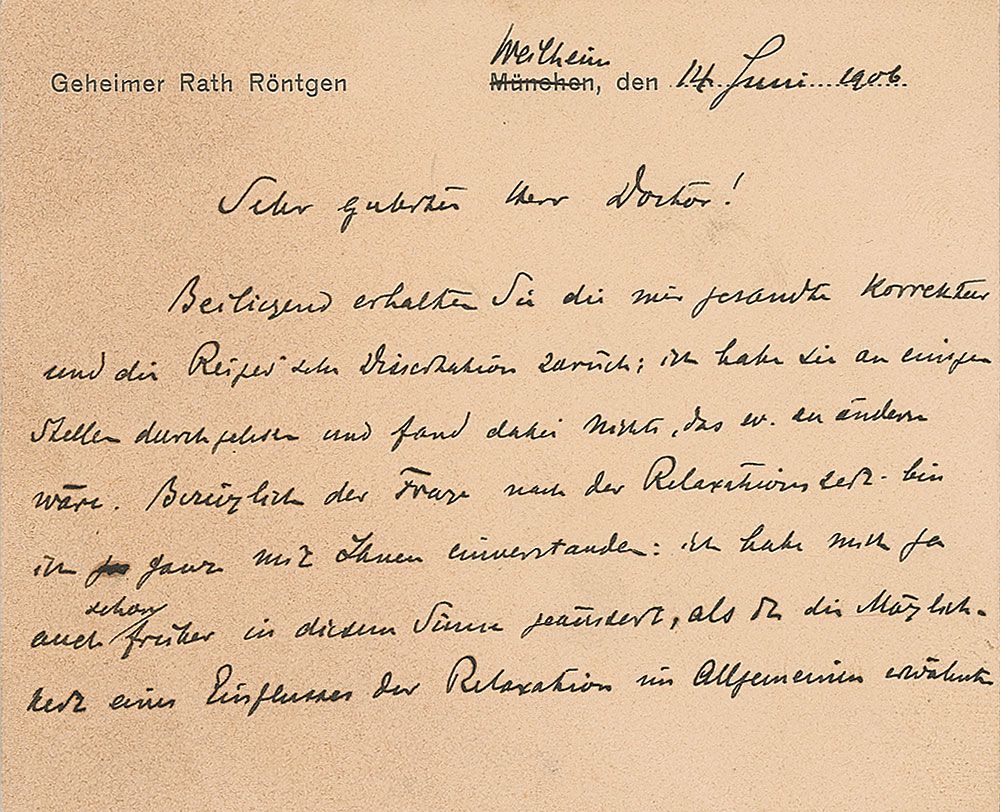 Weilheim
Geheimer Rath Röntgen München, den 14 Juni 1906
Sehr geehrter Herr Doctor!
Beiliegend erhalten Sie die mir gesandte Korrektur
und die Reiger'sche Dissertation zurück; ich habe sie an einigen
Stellen durchgelesen und fand dabei nichts, das ev. zu ändern
wäre. Bezüglich der Frage nach der Relaxationszeit bin
ich ganz mit Ihnen einverstanden: ich habe mich ja
schon
auch früher in diesem Sinne geäussert, als ich die Möglich-
keit eines Einflusses der Relaxation im Allgemeinen erwähnte